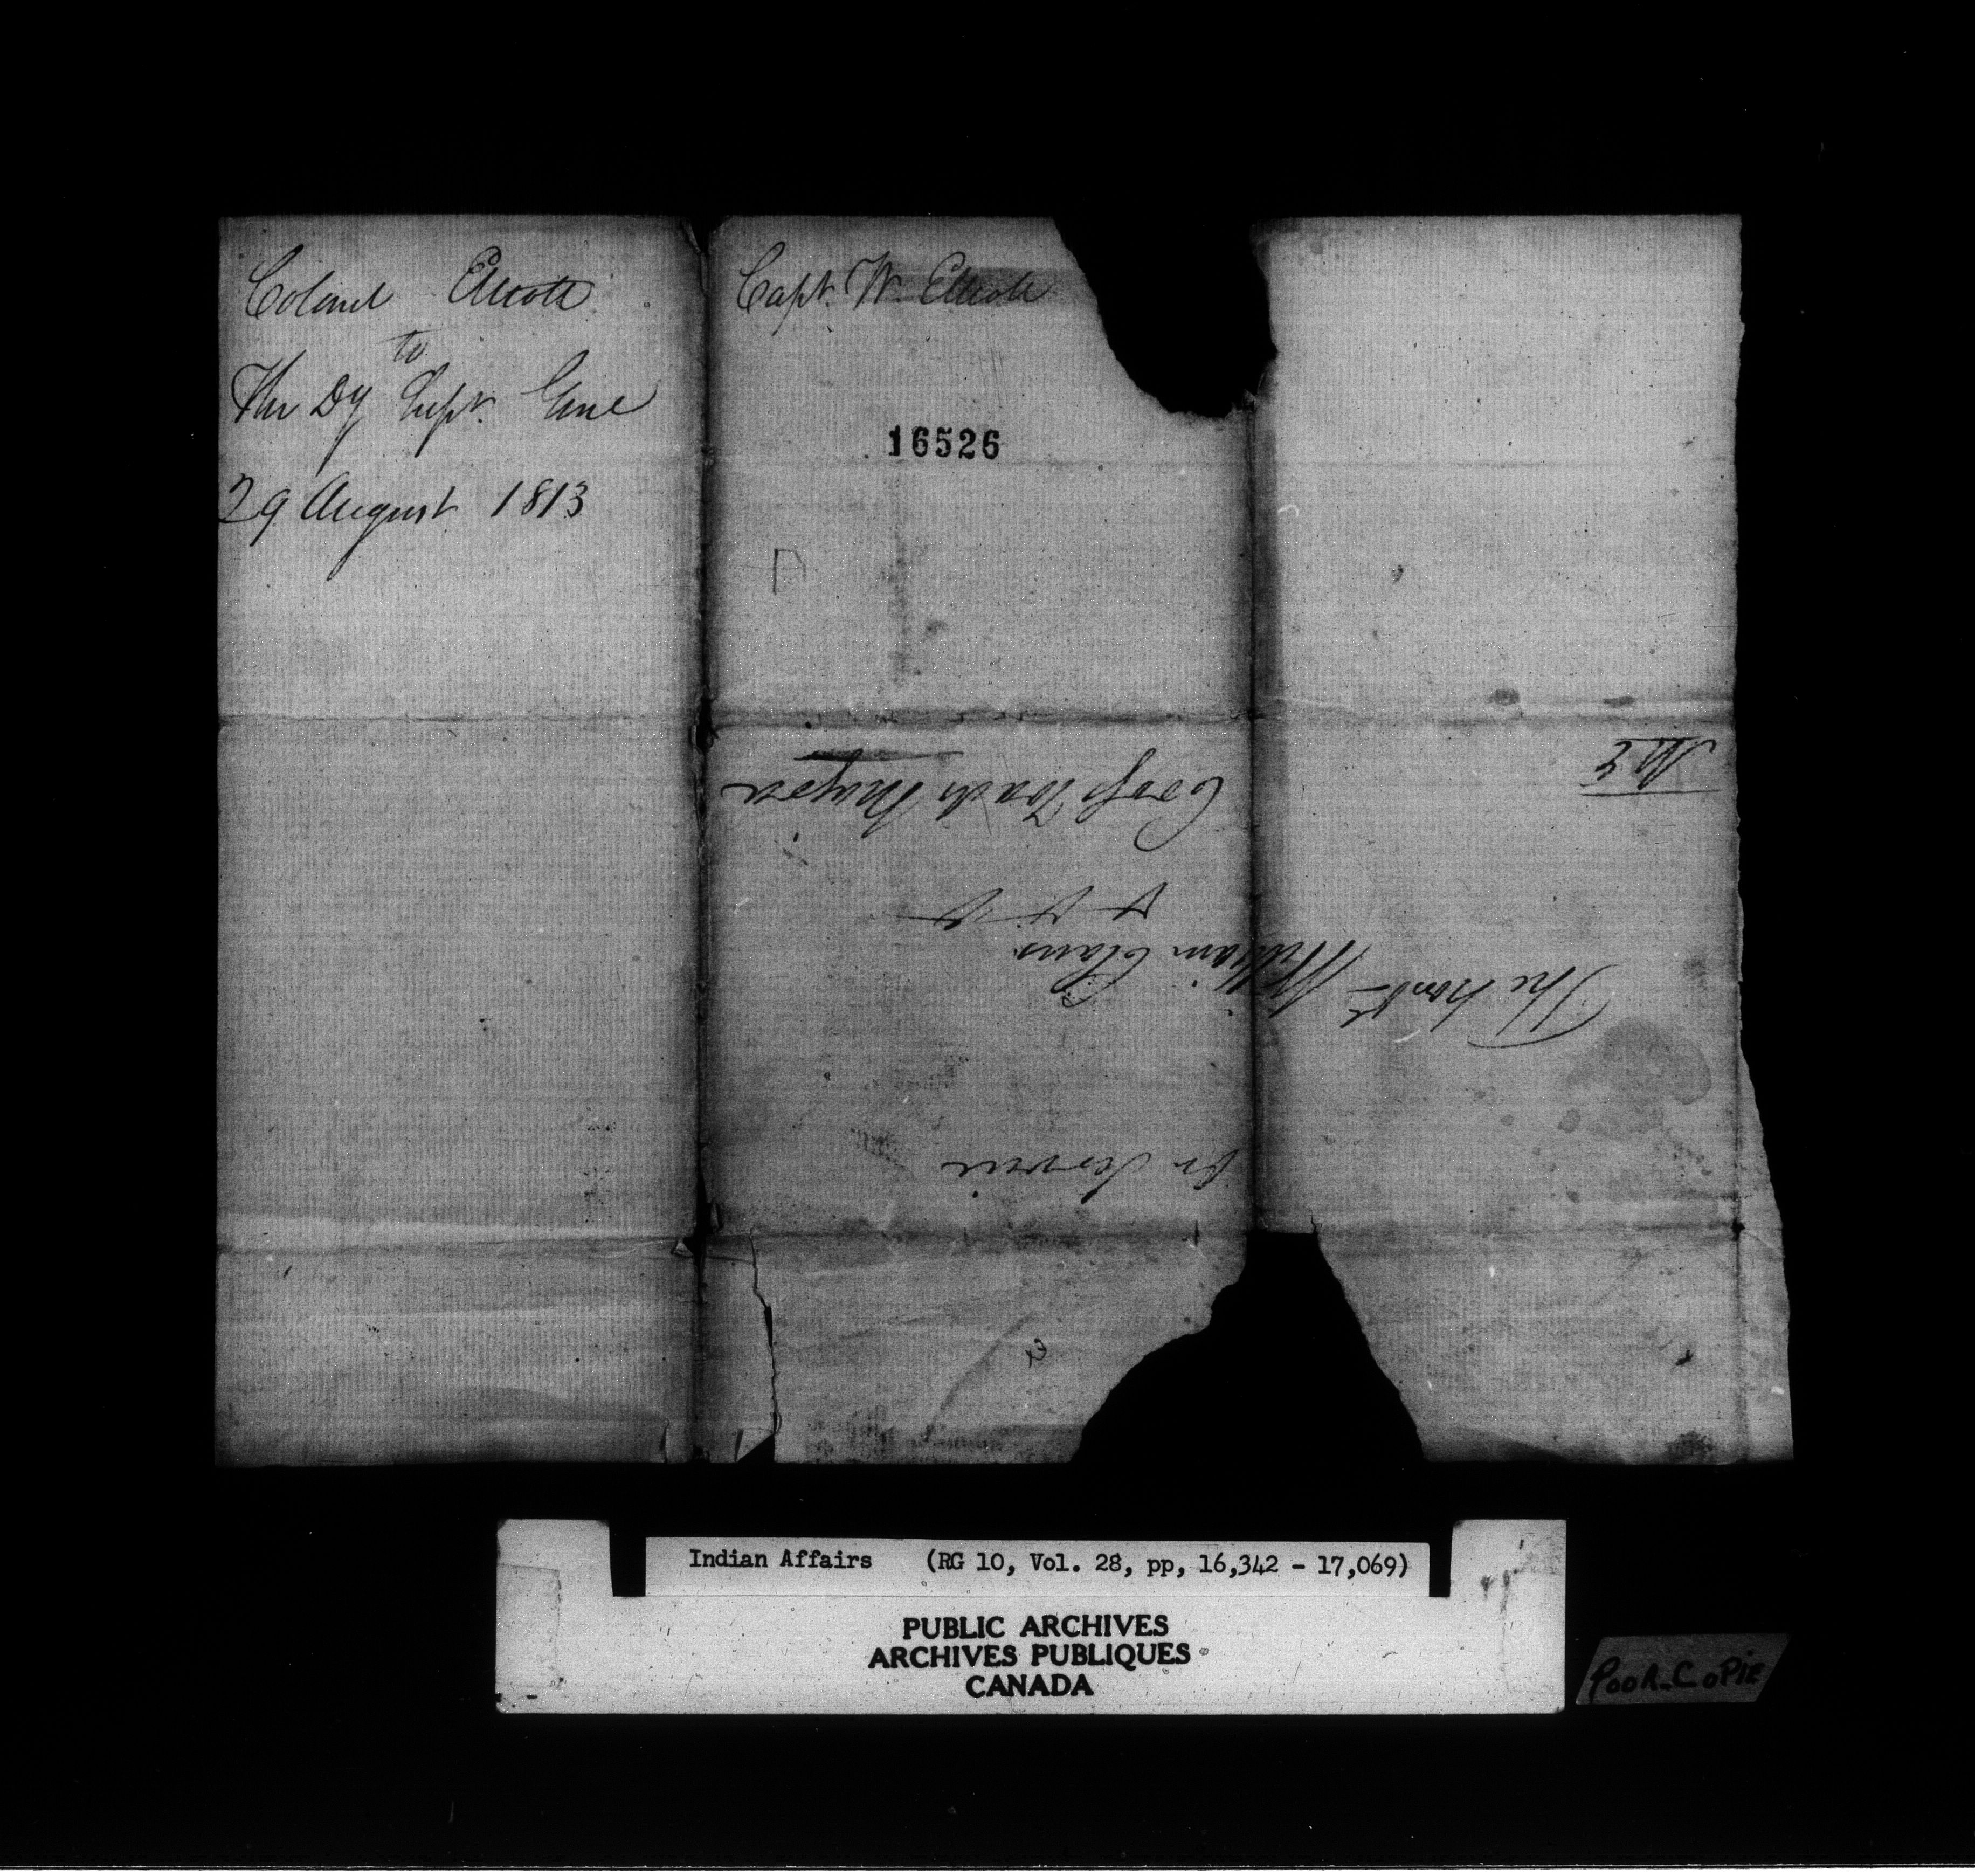 Colonel Elliott
to
The Dy Supt. Genl
29 August 1813
Capt. W. Elliott
16526
On Service
The Honble William Claus
&c &c &c
Indian Affairs (RG 10, Vol. 28, pp, 16,342 - 17,069)
PUBLIC ARCHIVES
ARCHIVES PUBLIQUES
CANADA
POOR COPIE